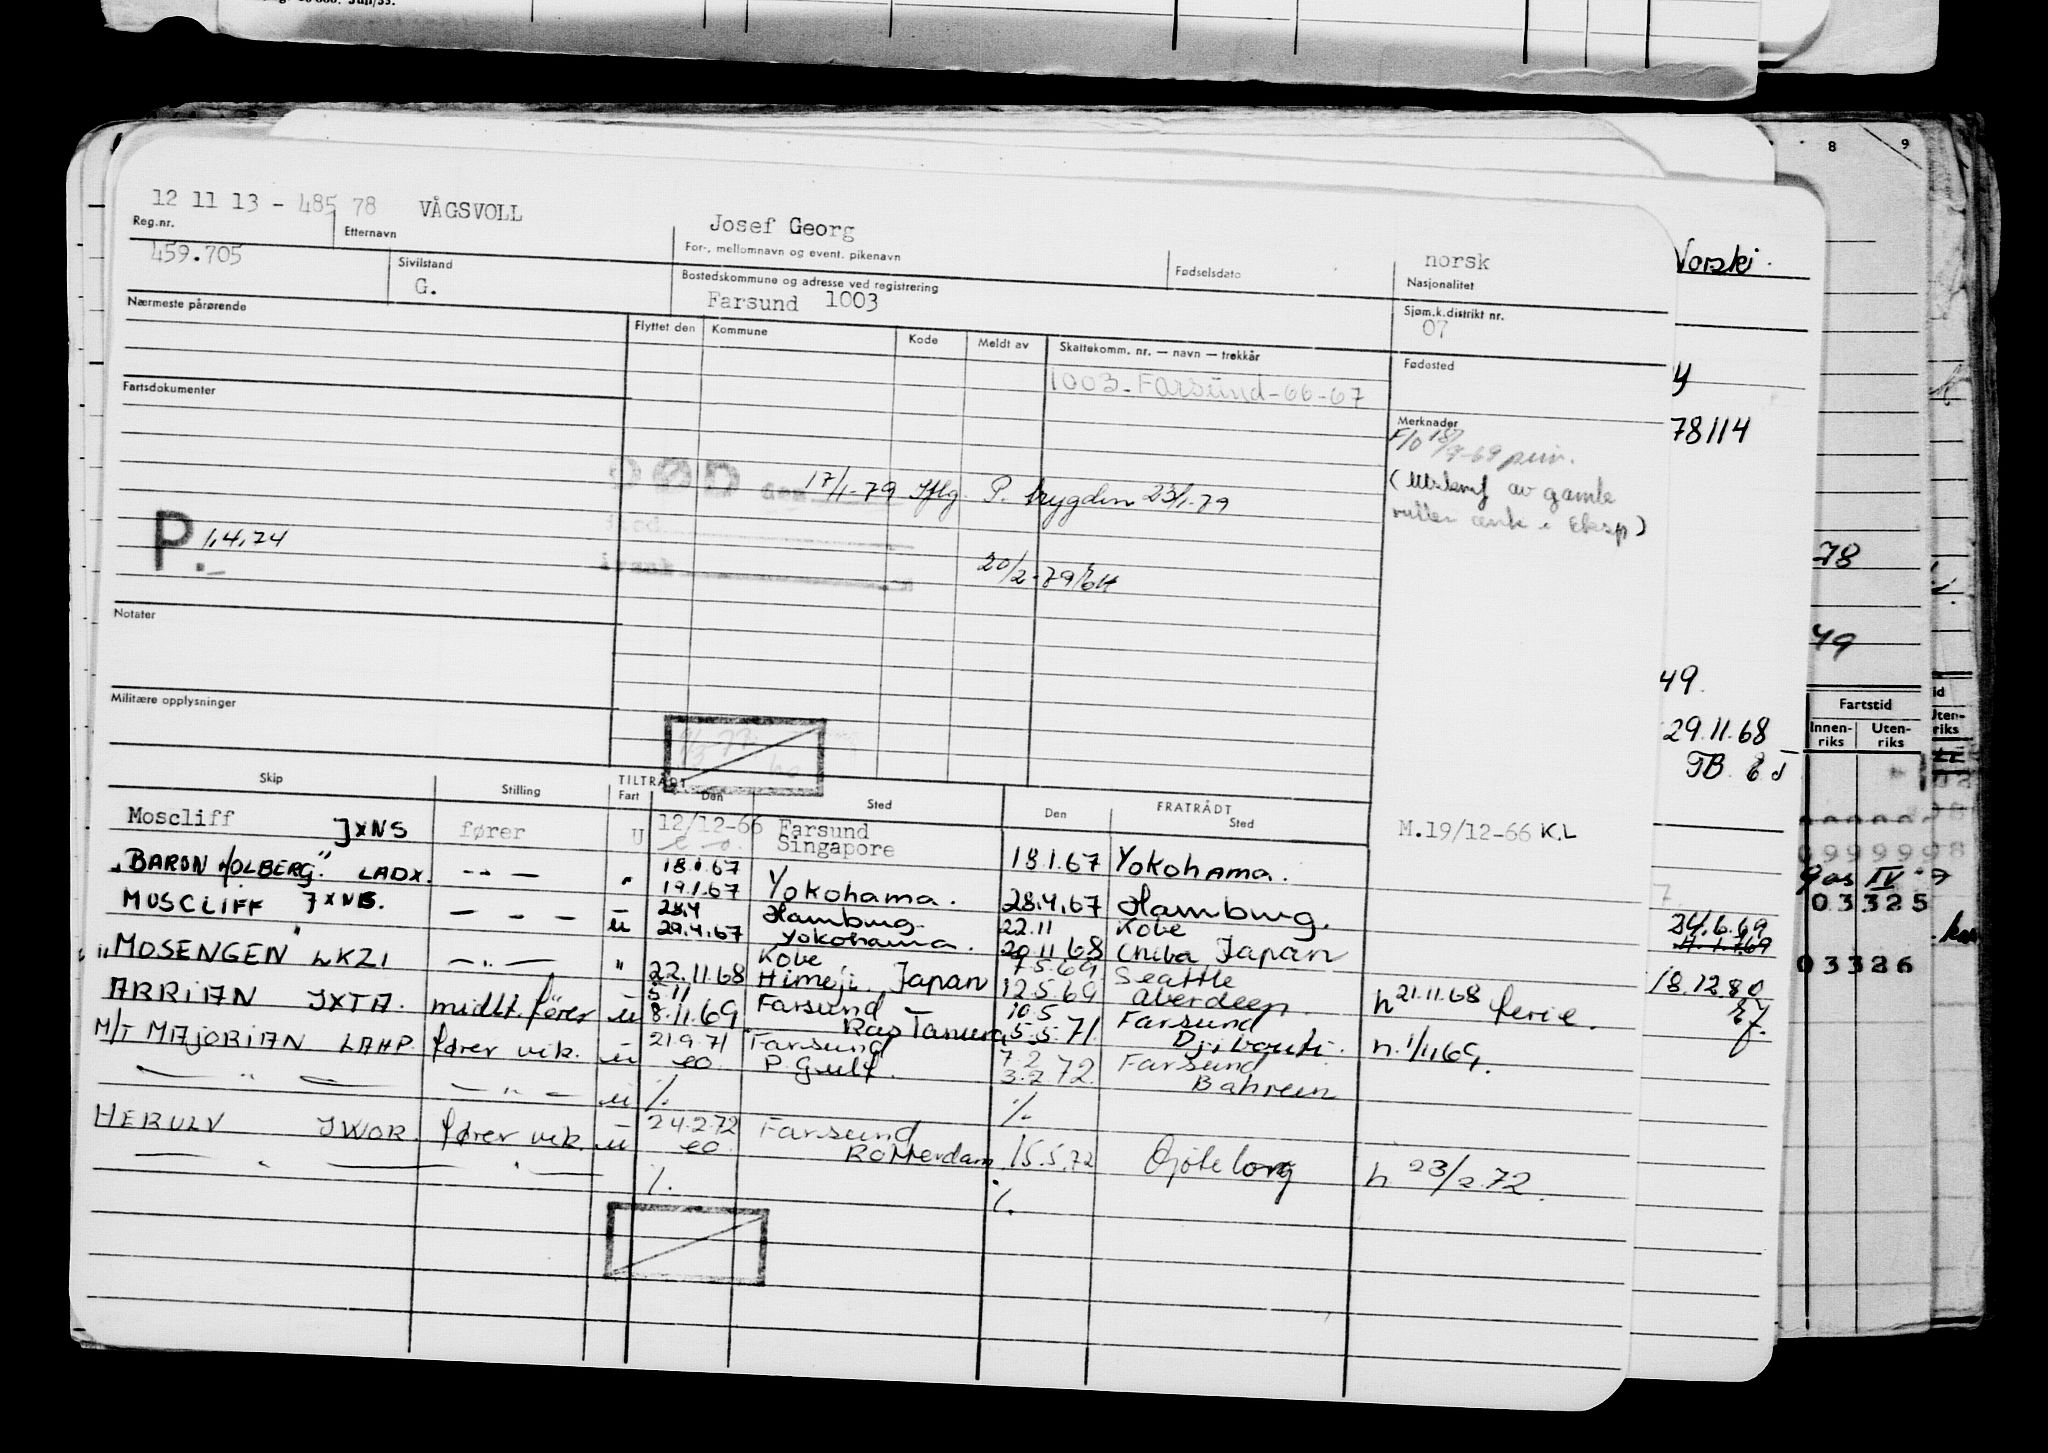 12 11 13 - 485 78 VÅGSVOLL Josef Georg norsk
Reg.nr. Etternavn For-, mellomnavn og event. pikenavn Fødselsdato Nasjonalitet
459.705 Sivilstand Bostedskommune og adresse ved registrering Sjøm.k.distrikt nr.
G. Farsund 1003 07
Nærmeste pårørende Flyttet den Kommune Kode Meldt av Skattekomm. nr. — navn — trekkår Fødested
1003-Farsund-66-67
Fartsdokumenter Merknader
F/O 18/9-69
( av gamle
Eksp)
DØD den 17/1-79 Iflg. P. trygden 23/1-79
P. 1.4.74
20/2-79
Notater
Militære opplysninger
Skip Stilling TILTRÅDT Fart Den Sted FRATRÅDT Den Sted
Moscliff JXNS fører U 12/12-66 Farsund M.19/12-66 K.L
e.o. Singapore 18.1.67 Yokohama.
"BARON HOLBERG" LADX. -"- " 18.1.67
19.1.67 Yokohama. 28.4.67 Hamburg.
MOSCLIFF JXNS. — - — u 28.4 Hamburg 22.11 Kobe
29.4.67 Yokohama. 20.11.68 Chiba Japan
"MOSENGEN" LKZI —"— " Kobe 7.5.69 Seattle
22.11.68 Himeji, Japan 12.5.69 Aberdeen. h 21.11.68 ferie.
ARRIAN JXTA. midlt. fører u 5.11 Farsund 10.5 Farsund
8.11.69 Ras Tanura 5.5.71. Djibouti. h. 1/11.69.
M/T MAJORIAN LAHP. fører vik. u 21.9.71 Farsund 7.2 Farsund
eo. P. Gulf. 3.2 72. Bahrein
— " — — " — u %. %.
HERULV JWOR. fører vik. u 24.2.72 Farsund
eo. Rotterdam 15.5.72 Gøteborg h 23/2.72.
— " — " — %. %.
Norski
78114
49.
29.11.68
24.6.69
18.12.80
8 9
78
49
Fartstid
Innen-riks Uten-riks
Uten-riks
03325
03326